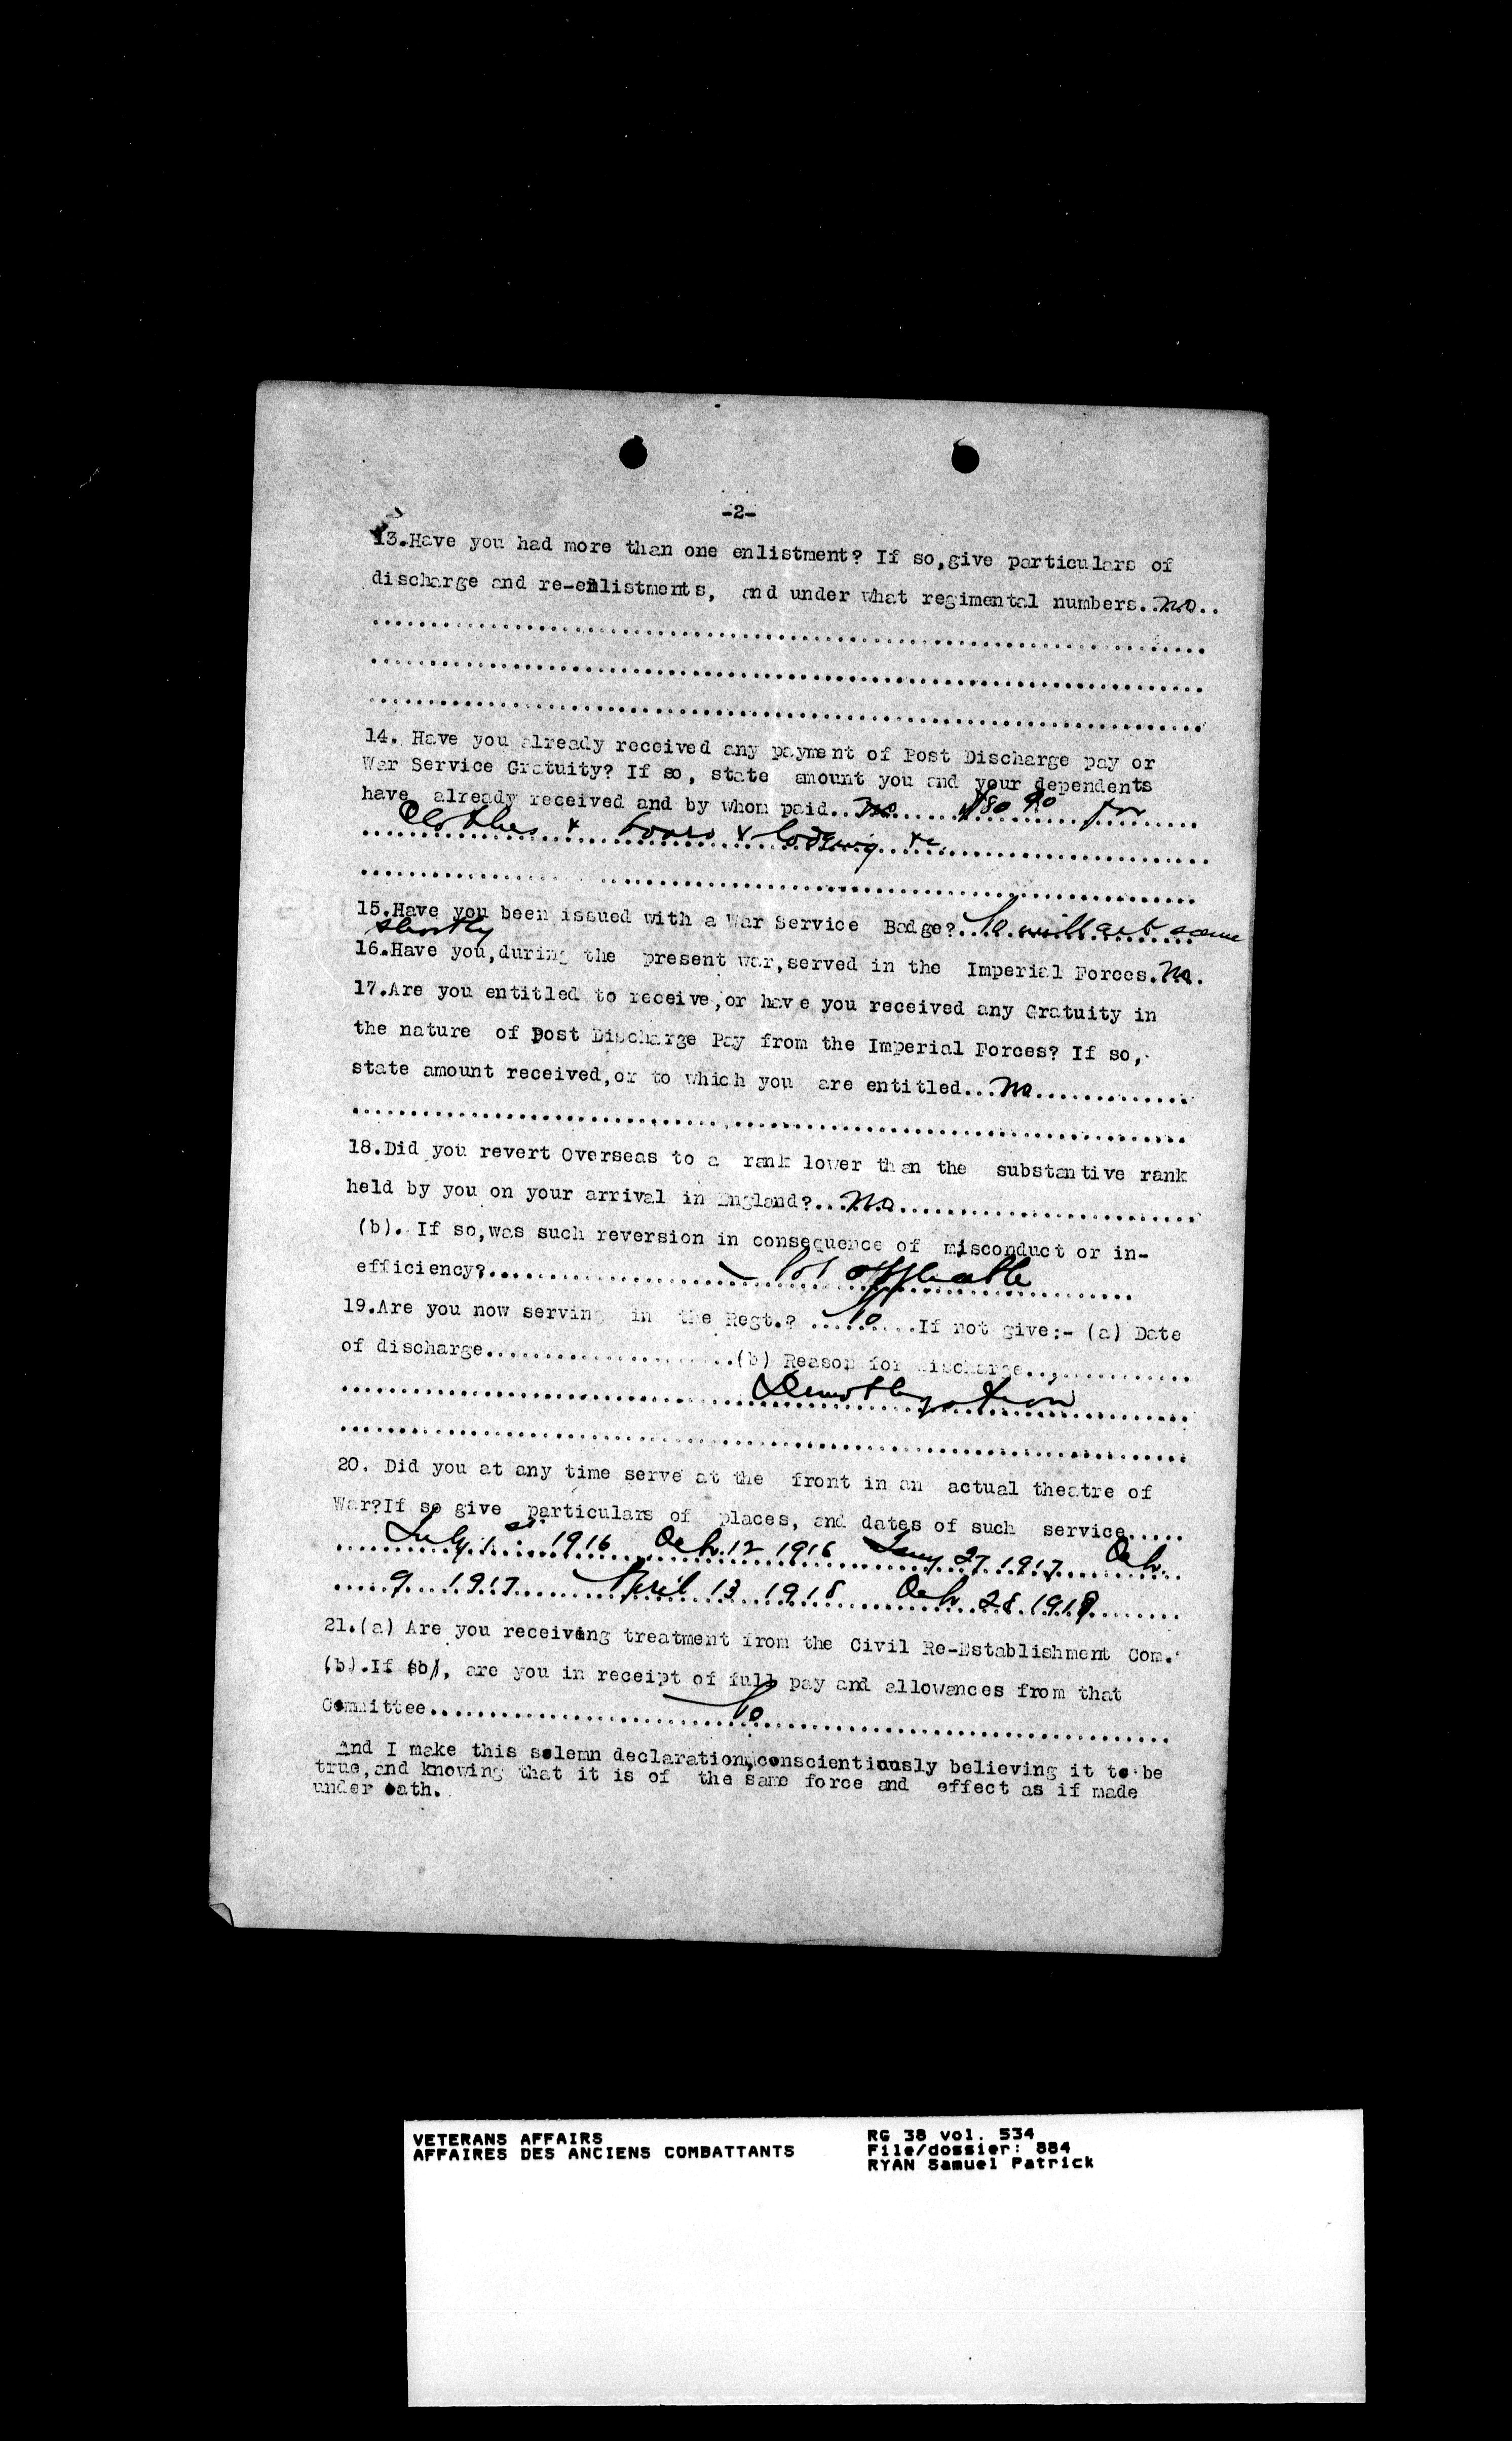 -2-
13.Have you had more than one enlistment? If so,give particulars of
discharge and re-enlistments, and under what regimental numbers..no..
14. Have you already received any payment of Post Discharge pay or
War Service Gratuity? If so, state amount you and your dependents
have already received and by whom paid.. no $80 90 for
Clothes & & lodging &c
15.Have you been issued with a War Service Badge?..No will get same
shortly
16.Have you,during the present war,served in the Imperial Forces.No.
17.Are you entitled to receive,or have you received any Gratuity in
the nature of Post Discharge Pay from the Imperial Forces? If so,
state amount received,or to which you are entitled...No..............
18.Did you revert Overseas to a rank lower than the substantive rank
held by you on your arrival in England?...No..........................
(b). If so,was such reversion in consequence of misconduct or in-
efficiency?...................... Not applicable
19.Are you now serving in the Regt.? ....No.....If not give:- (a) Date
of discharge.......................(b) Reason for discharge...............
Demobilization
20. Did you at any time serve at the front in an actual theatre of
War?If so give particulars of places, and dates of such service.....
July 1st 1916 Oct 12 1916 Jany 27 1917 Oct
9 1917 April 13 1918 Oct 28 1918
21.(a) Are you receiving treatment from the Civil Re-Establishment Com.
(b).If so, are you in receipt of full pay and allowances from that
Committee............................No......................................
And I make this solemn declaration,conscientiously believing it to be
true,and knowing that it is of the same force and effect as if made
under oath.
VETERANS AFFAIRS RG 38 vol. 534
AFFAIRES DES ANCIENS COMBATTANTS File/dossier: 884
RYAN Samuel Patrick